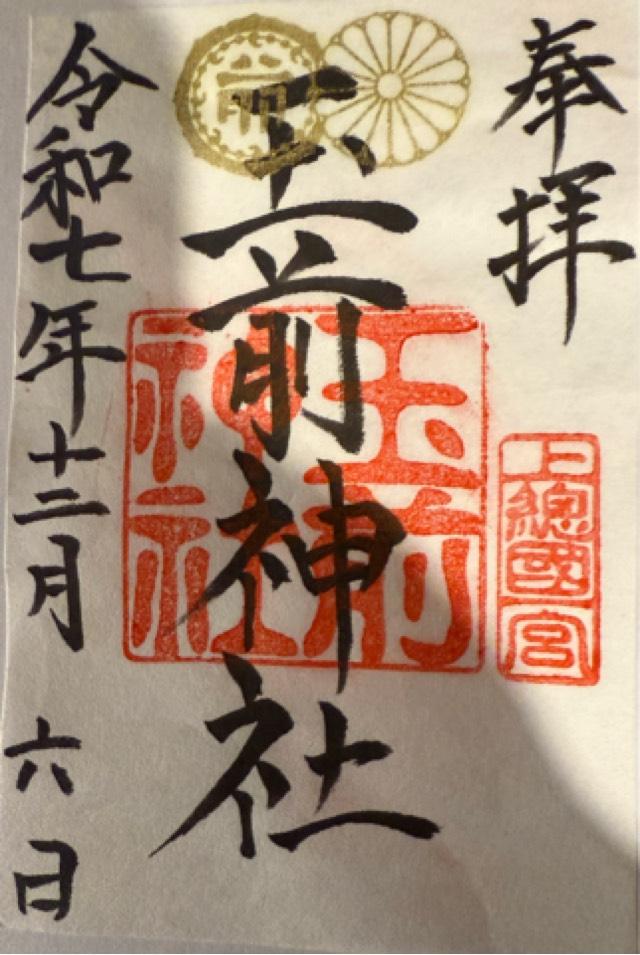 奉拝
上總國一宮
玉前神社
玉前神社
令和七年十二月六日